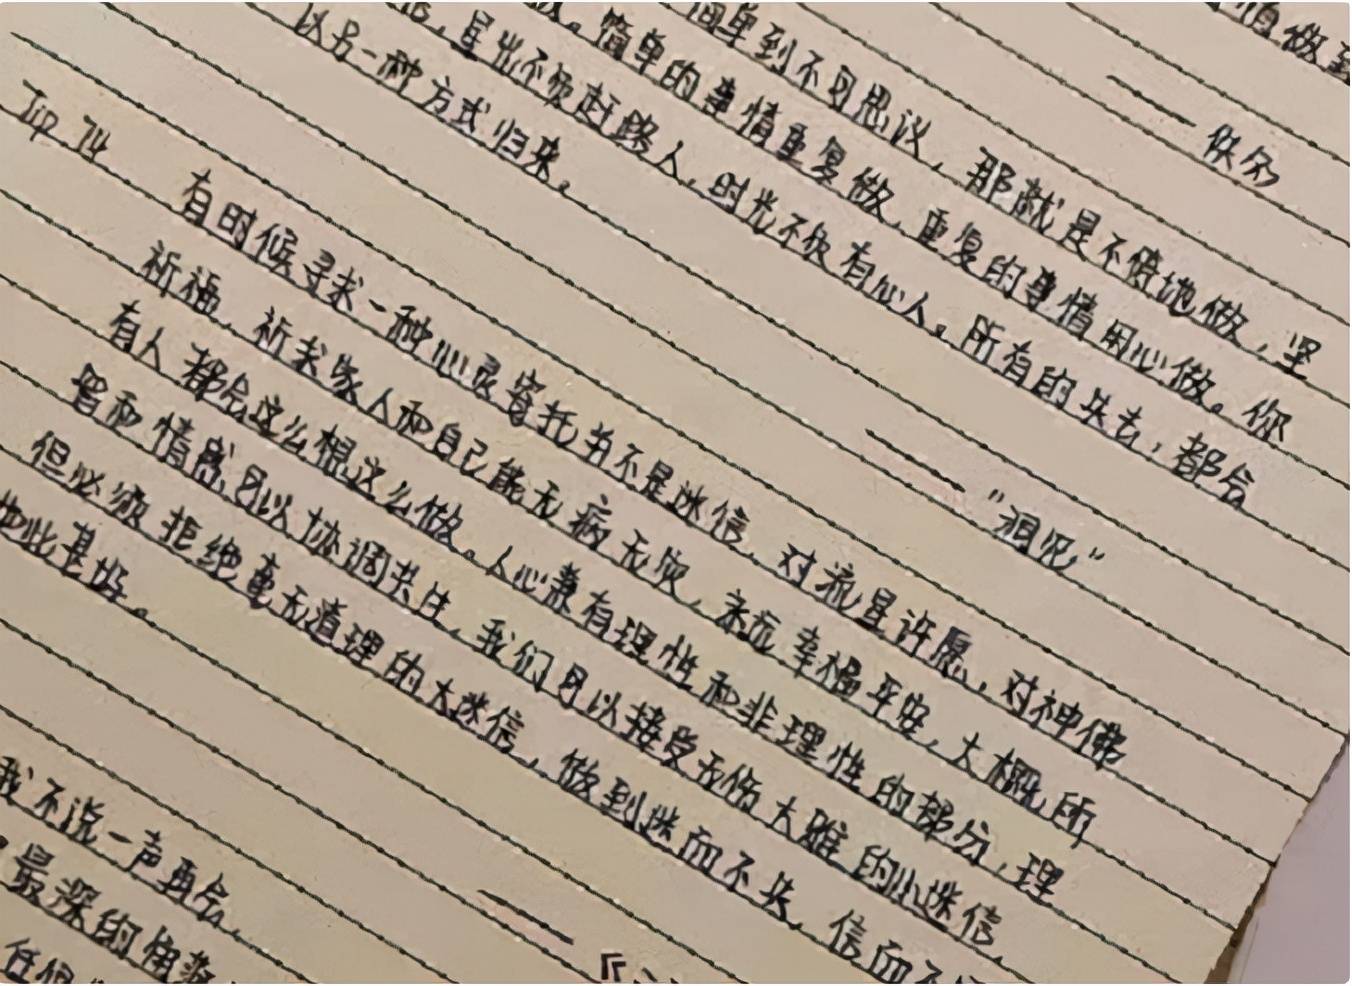 慎做到
—— 佚名
简单到不可思议，那就是不停地做，坚
做。简单的事情重复做，重复的事情用心做。你
信，星光不负赶路人，时光不负有心人。所有的失去，都会
以另一种方式归来。
——"洞见"
有时候寻求一种心灵寄托并不是迷信，对流星许愿，对神佛
祈福，祈求家人和自己能无病无灾，永远幸福平安，大概所
有人都会这么想这么做。人心兼有理性和非理性的部分，理
智和情感可以协调共生，我们可以接受无伤大雅的小迷信，
但必须拒绝毫无道理的大迷信，做到迷而不失，信而不
如此甚好。
我不说一声再会，
最深的
任何